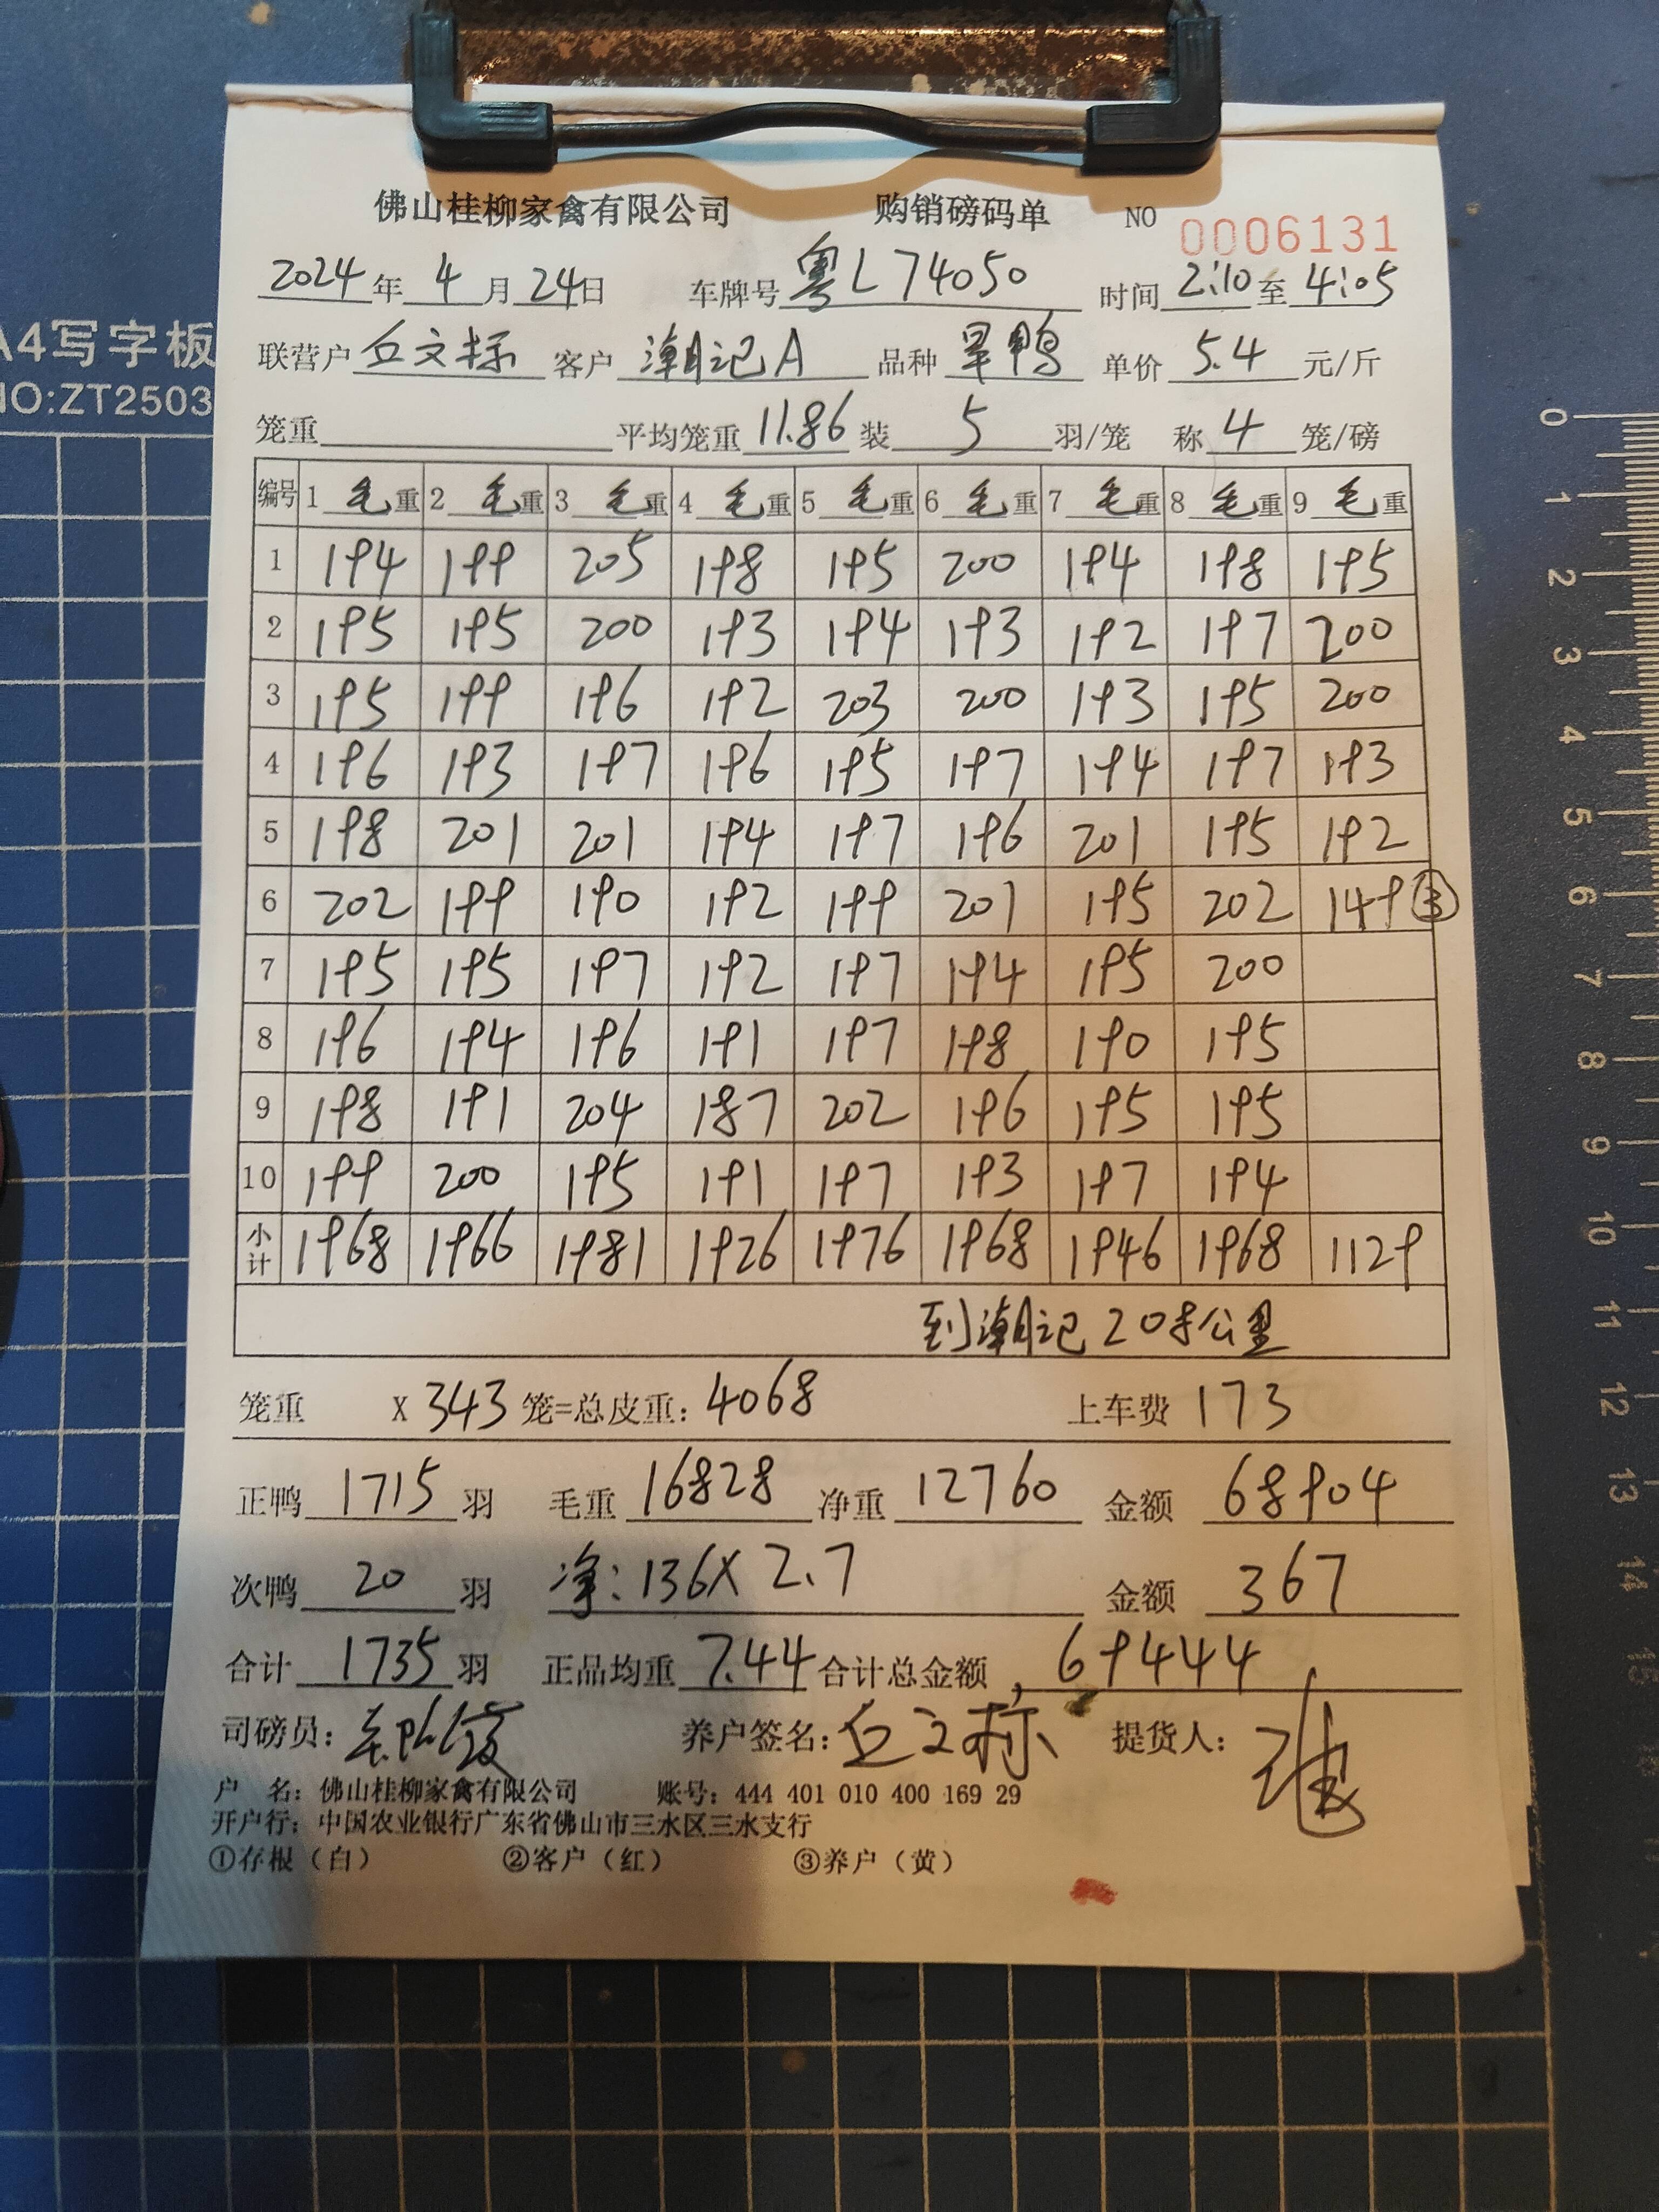 佛山桂柳家禽有限公司 购销磅码单 NO 0006131
2024年 4月 24日 车牌号 粤L74050 时间 2:10 至 4:05
联营户 丘文标 客户 潮记A 品种 旱鸭 单价 5.4 元/斤
笼重 平均笼重 11.86 装 5 羽/笼 称 4 笼/磅
编号 1 毛重 2 毛重 3 毛重 4 毛重 5 毛重 6 毛重 7 毛重 8 毛重 9 毛重
1 194 199 205 198 195 200 194 198 195
2 195 195 200 193 194 193 192 197 200
3 195 199 196 192 203 200 193 195 200
4 196 193 197 196 195 197 194 197 193
5 198 201 201 194 197 196 201 195 192
6 202 199 190 192 199 201 195 202 149 ③
7 195 195 197 192 197 194 195 200
8 196 194 196 191 197 198 190 195
9 198 191 204 187 202 196 195 195
10 199 200 195 191 197 193 197 194
小计 1968 1966 1981 1926 1976 1968 1946 1968 1129
到潮记 208公里
笼重 X 343 笼=总皮重: 4068 上车费 173
正鸭 1715 羽 毛重 16828 净重 12760 金额 68904
次鸭 20 羽 净: 136X 2.7 金额 367
合计 1735 羽 正品均重 7.44 合计总金额 69444
司磅员: 养户签名: 丘文标 提货人:
户 名: 佛山桂柳家禽有限公司 账号: 444 401 010 400 169 29
开户行: 中国农业银行广东省佛山市三水区三水支行
①存根（白） ②客户（红） ③养户（黄）
A4写字板
NO:ZT2503
0
1
2
3
4
5
6
7
8
9
10
11
12
13
14
15